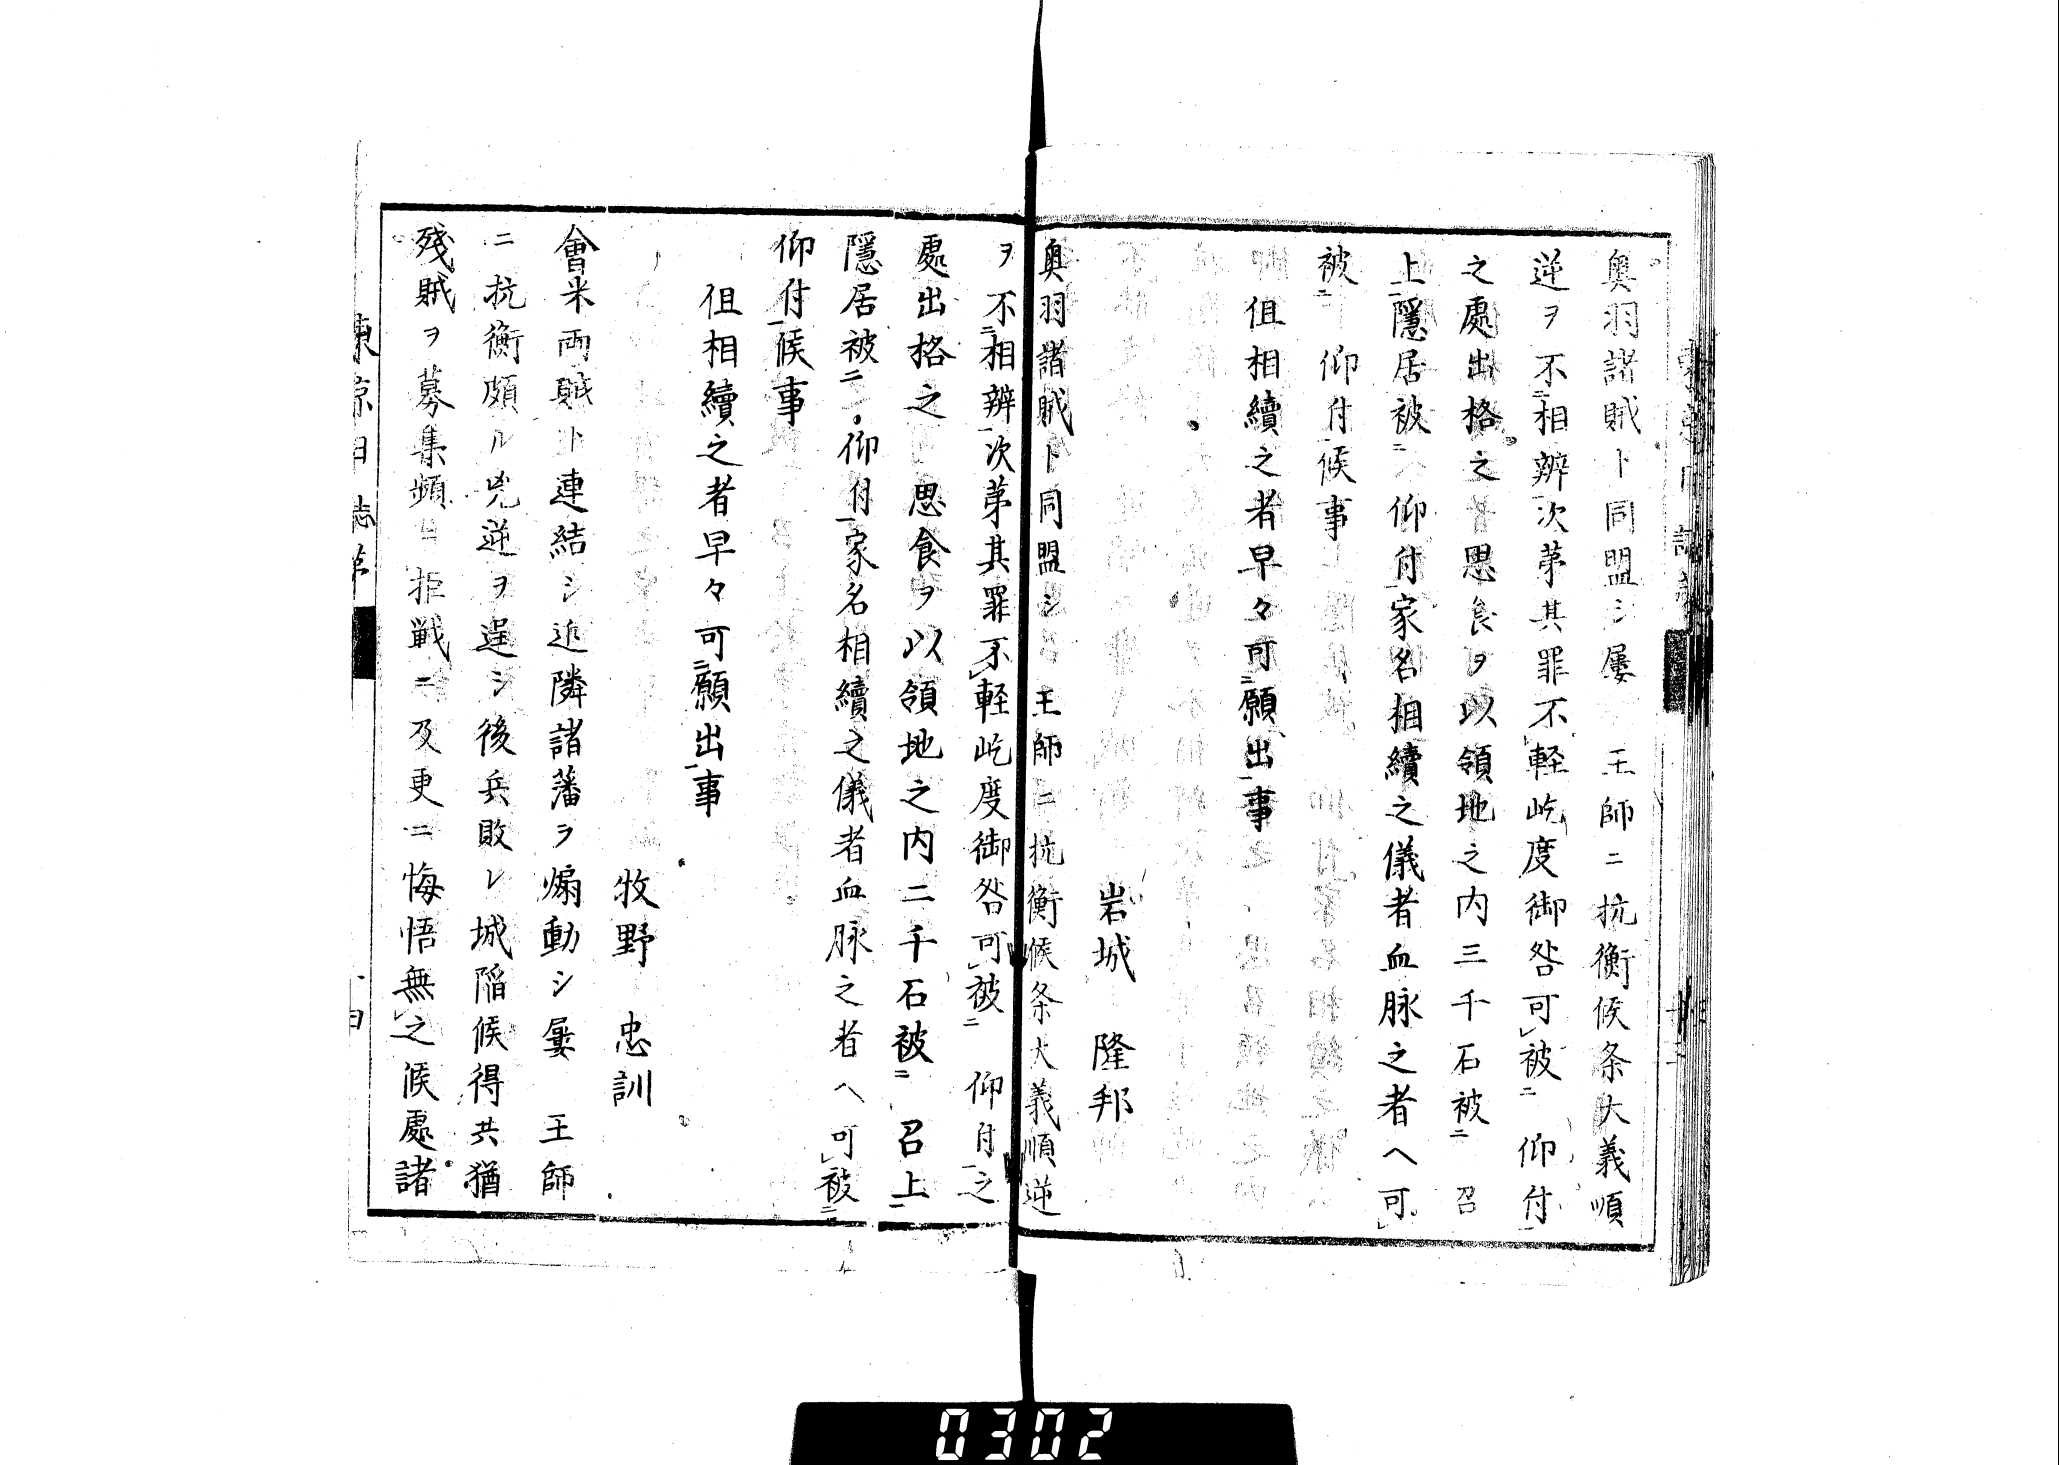 奥羽諸賊ト同盟シ屡　王師ニ抗衡候条大義順
逆ヲ不ニ相辨一次第其罪不レ軽屹度御咎可レ被ニ　仰付一
之處出格之　思食ヲ以領地之内三千石被ニ　召
上一隠居被ニ　仰付一家名相續之儀者血脉之者へ可レ
被ニ　仰付一候事
但相續之者早々可ニ願出一事
岩城　隆邦
奥羽諸賊ト同盟シ　王師ニ抗衡候条大義順逆
ヲ不ニ相辨一次第其罪不レ軽屹度御咎可レ被ニ　仰付一之
處出格之　思食ヲ以領地之内二千石被ニ　召上一
隠居被ニ　仰付一家名相續之儀者血脉之者へ可レ被ニ
仰付一候事
但相續之者早々可ニ願出一事
牧野　忠訓
會米両賊ト連結シ近隣諸藩ヲ煽動シ屡　王師
ニ抗衡頗ル兇逆ヲ逞シ後兵敗レ城陥候得共猶
残賊ヲ募集頻ニ拒戦ニ及更ニ悔悟無レ之候處諸
0302